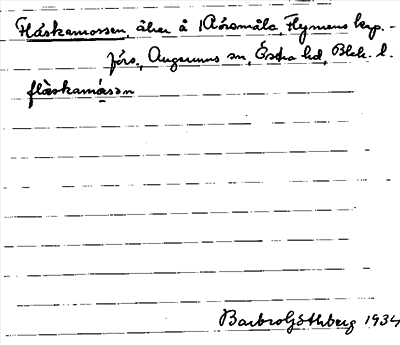 Fläskamossen, åker å 1 Aórsmåla, Flymens kap.-
förs., Augerums sn, Östra hd, Blek. l.
flàskamåsən
Barbro Göthberg 1934